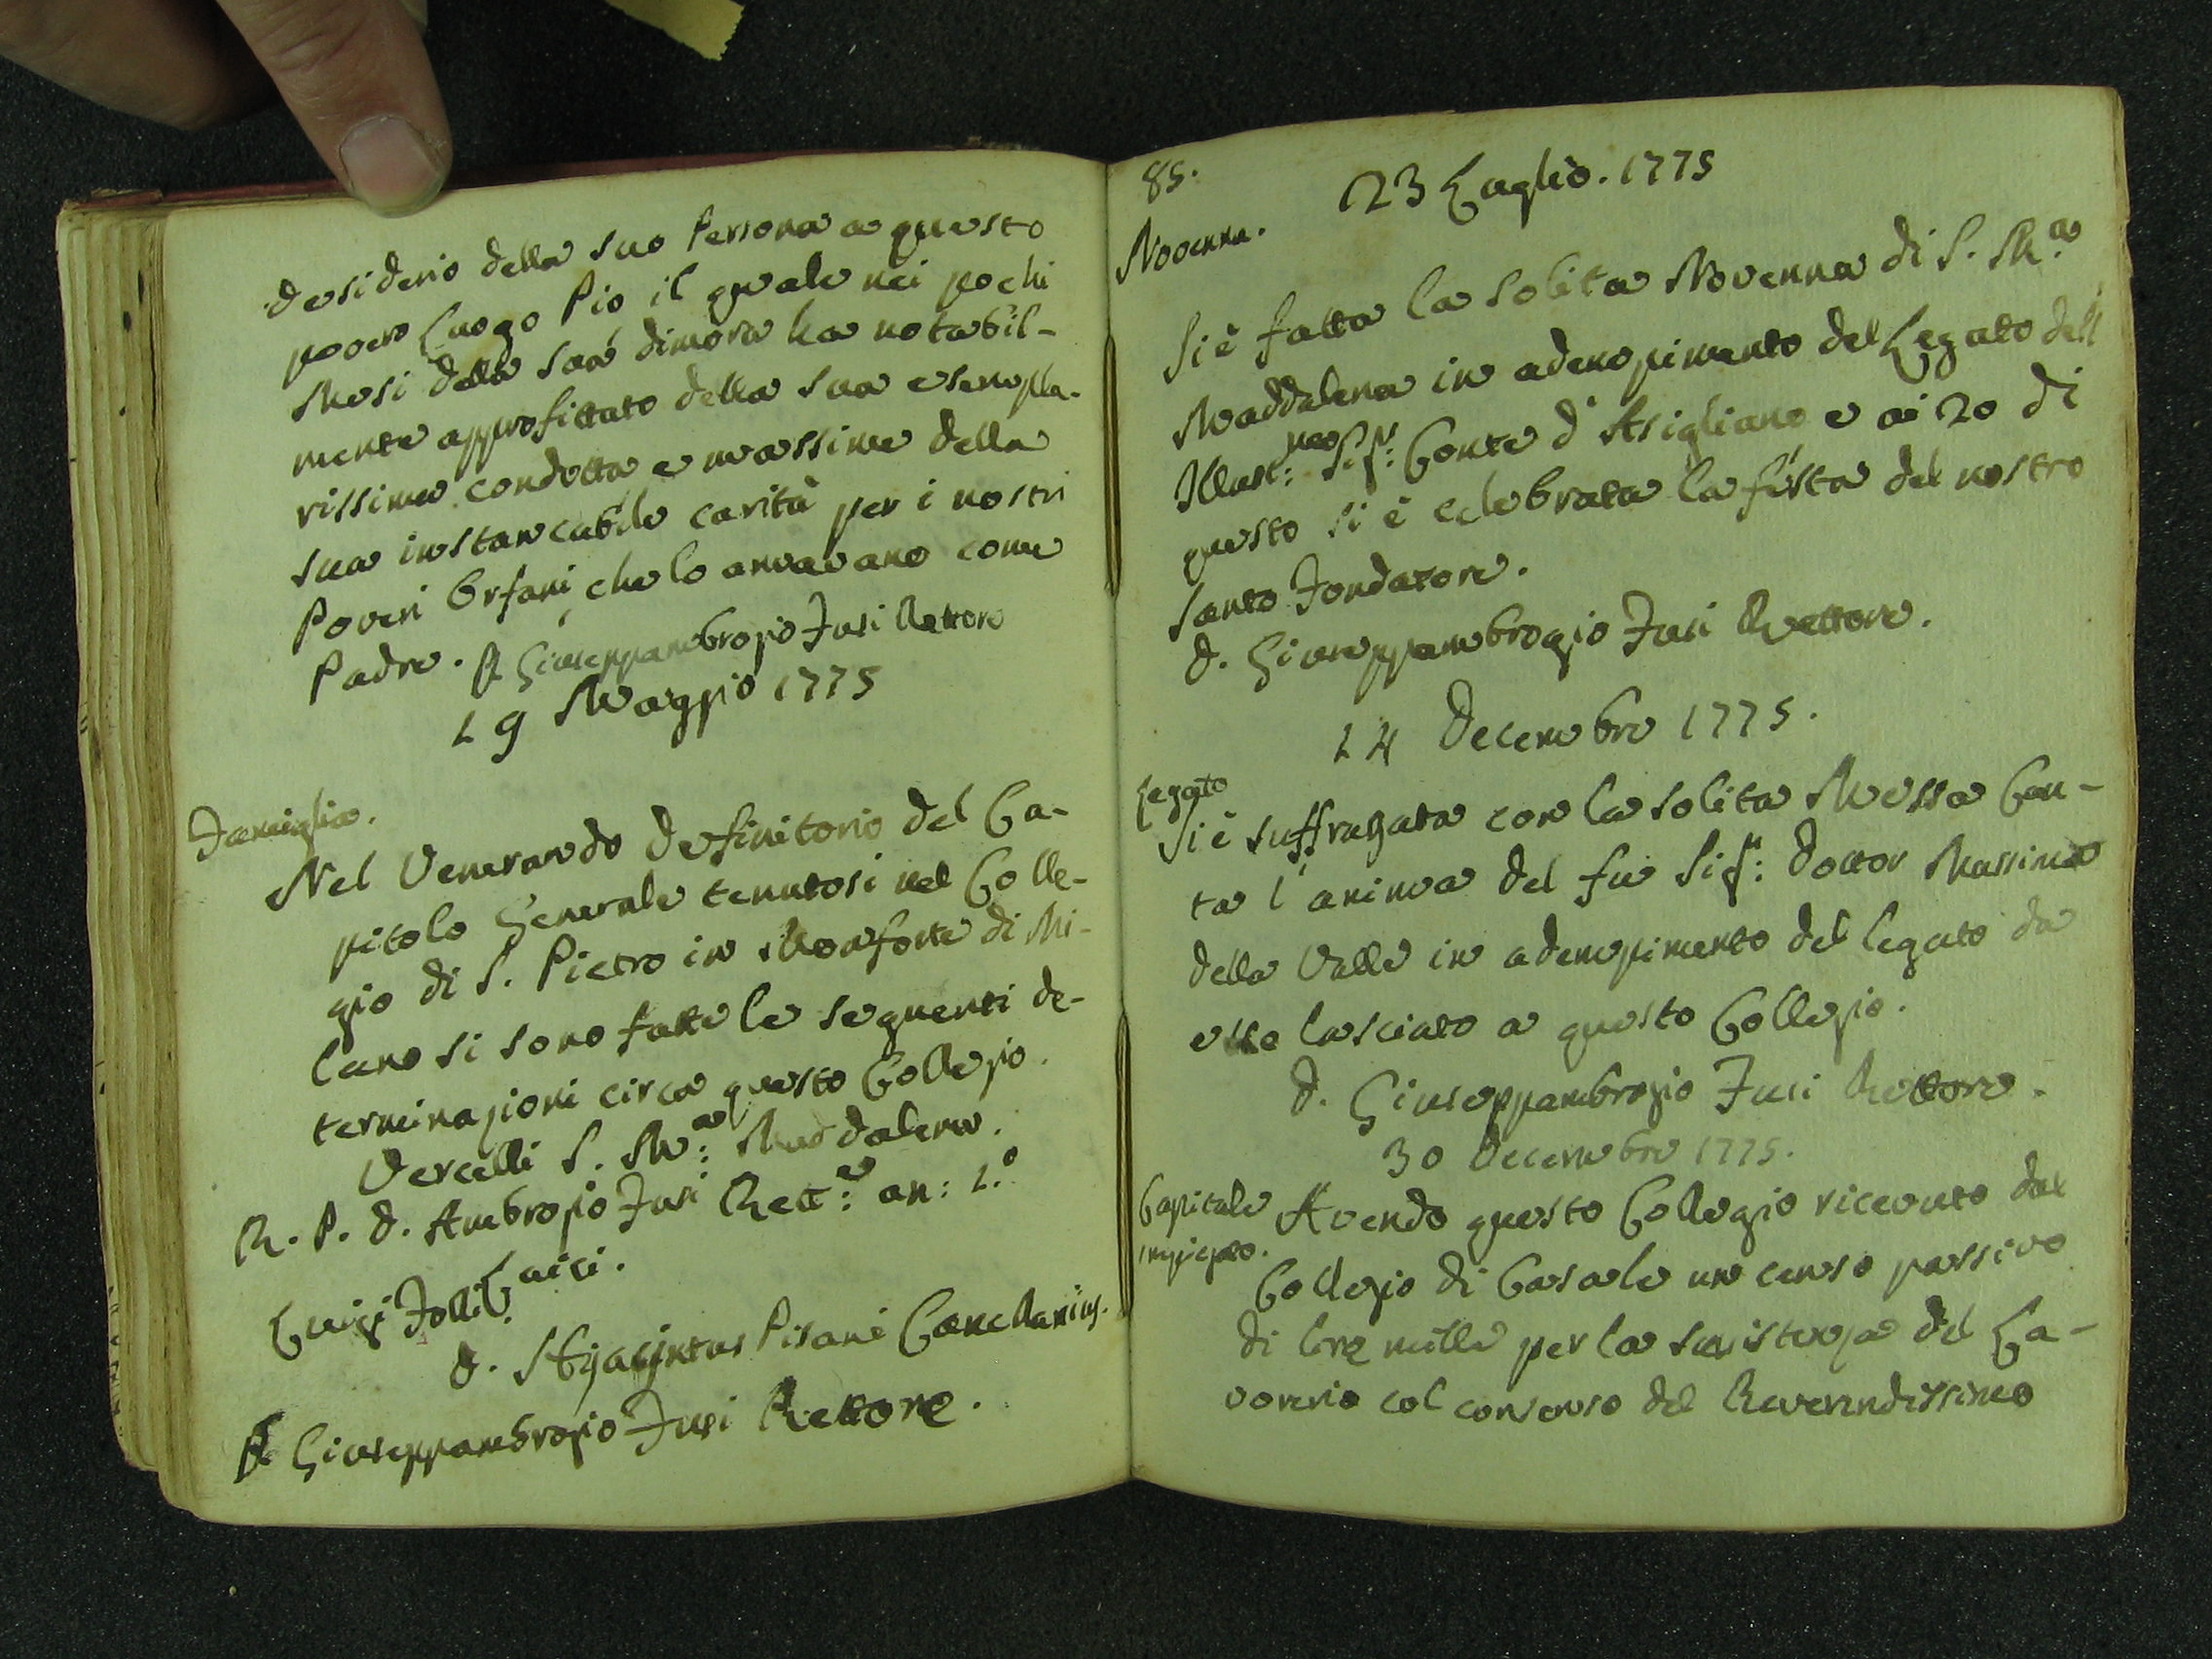 desiderio della suo Persona a questo
povero Luogo Pio il quale nei pochi
Mesi della sua dimora ha notabil-
mente approfittato della sua esempla-
rissima condotta e massime della
sua instancabile carità per i nostri
Poveri Orfani, che lo amavano come
Padre. D. Giuseppambrogio Fusi Rettore
19 Maggio 1775
Famiglia.
Nel Venerando Definitorio del Ca-
pitolo Generale tenutosi nel Colle-
gio di S. Pietro in Monforte di Mi-
lano si sono fatte le seguenti de-
terminazioni circa questo Collegio.
Vercelli S. M:a Maddalena.
R. P. D. Ambrogio Fusi Rett:e an: 1.o
Luigi Folli
D. Hyacintus Pisani Cancellarius.
D. Giuseppambrogio Fusi Rettore.
85.
23 Luglio. 1775
Novenna.
Si è fatta la solita Novenna di S. M.a
Maddalena in adempimento del Legato dell'
Illust:mo Sig:r Conte d'Asigliano e ai 20 di
questo si è celebrata la festa del nostro
Santo Fondatore.
D. Giuseppambrogio Fusi Rettore.
14 Decembre 1775.
Legato
Si è suffragata con la solita Messa Can-
ta l'anima del fu Sig:r Dottor Massimo
della Valle in adempimento del legato da
esso lasciato a questo Collegio.
D. Giuseppambrogio Fusi Rettore.
30 Decembre 1775.
Capitale
impiegato.
Avendo questo Collegio ricevuto dal
Collegio di Casale un censo passivo
di lire mille per la del La-
vorerio col consenso del Reverendissimo